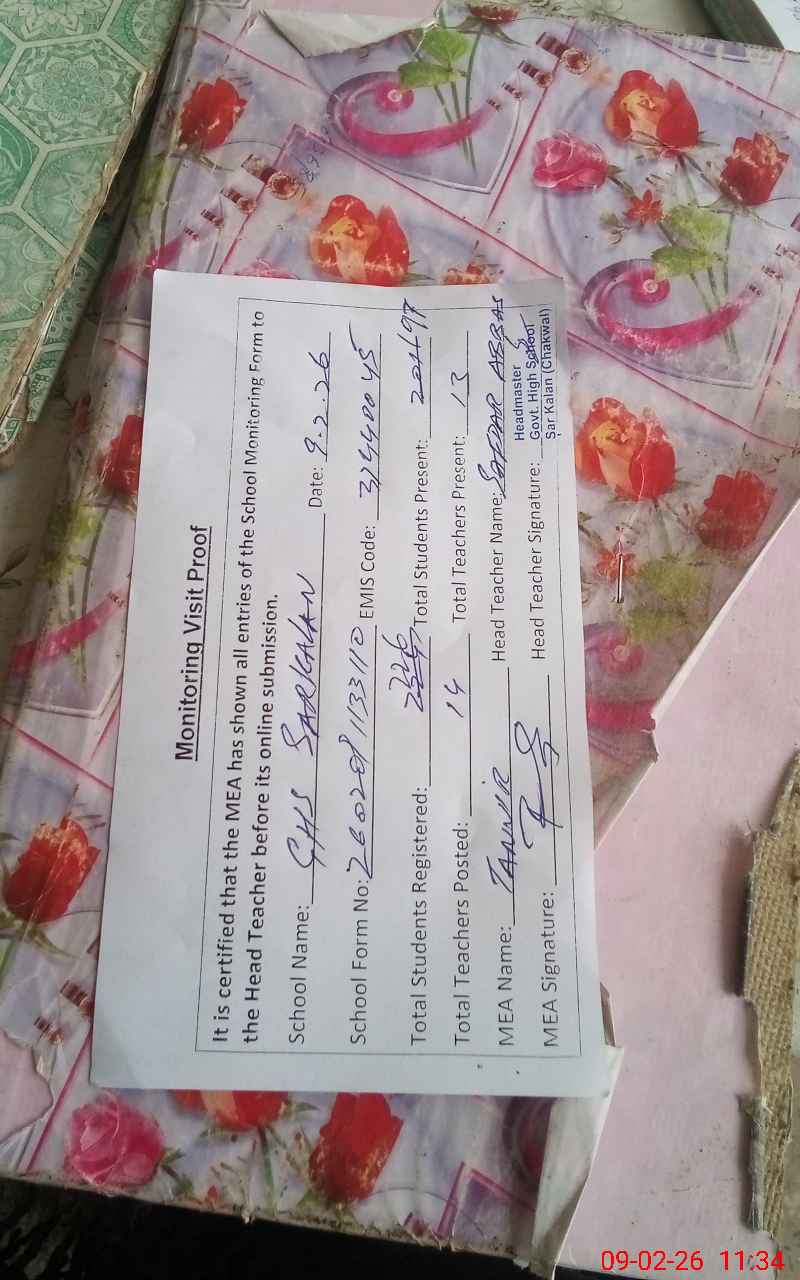 Monitoring Visit Proof
It is certified that the MEA has shown all entries of the School Monitoring Form to
the Head Teacher before its online submission.
School Name: GHS SARKALAN Date: 9.2.26
School Form No: EMIS Code:
Total Students Registered: Total Students Present: 97
Total Teachers Posted: 14 Total Teachers Present: 13
MEA Name: TANVIR Head Teacher Name: SAFDAR ABBAS
MEA Signature: Head Teacher Signature:
Headmaster
Govt. High School
Sar Kalan (Chakwal)
09-02-26 11:34